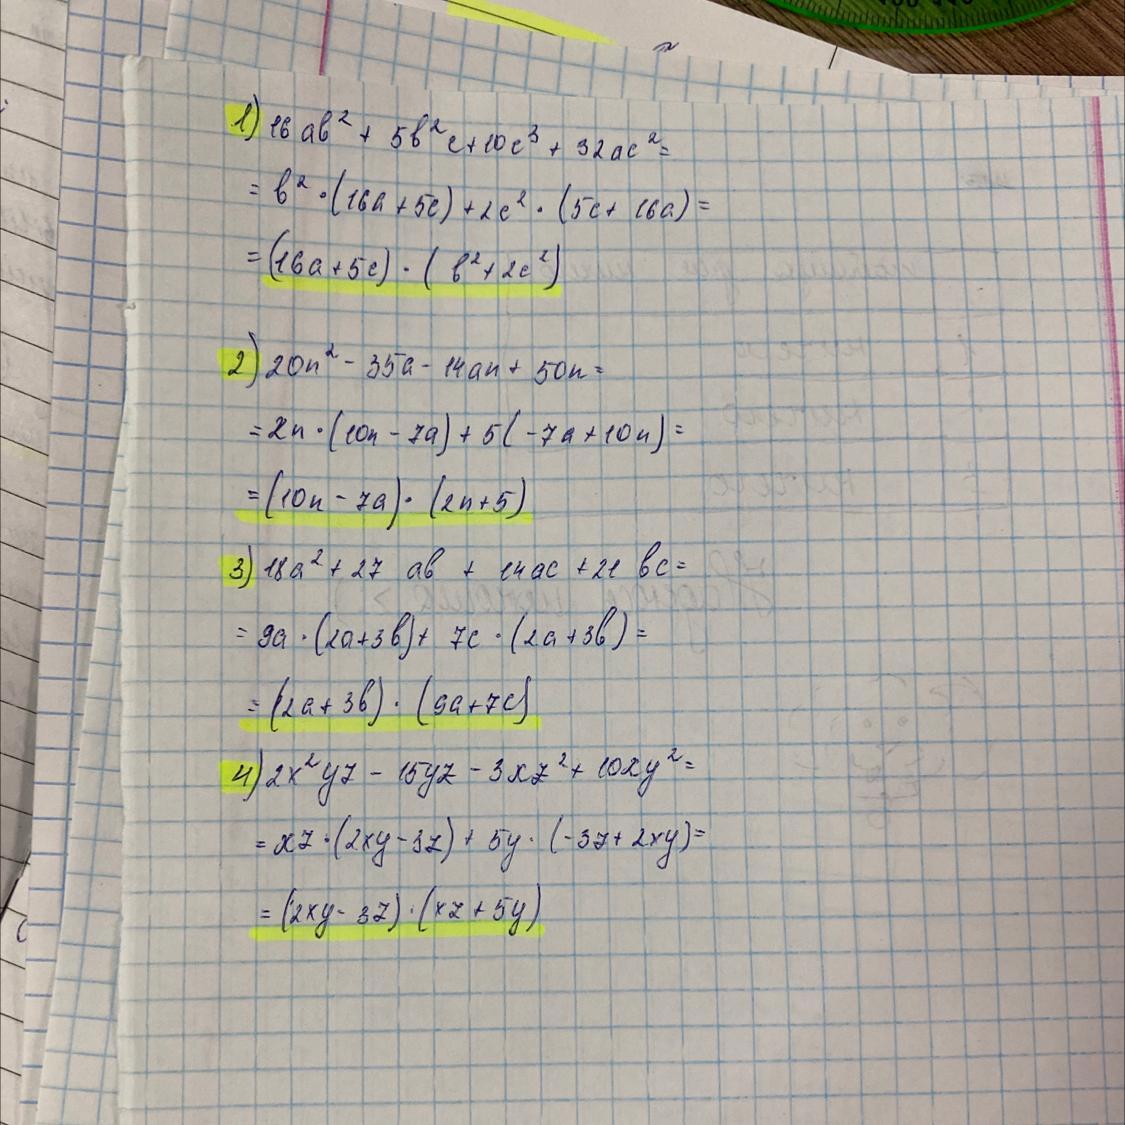 1) 16ab² + 5b²c + 10c³ + 32ac² =
= b² · (16a + 5c) + 2c² · (5c + 16a) =
= (16a + 5c) · (b² + 2c²)
2) 20n² - 35a - 14an + 50n =
= 2n · (10n - 7a) + 5(-7a + 10n) =
= (10n - 7a) · (2n + 5)
3) 18a² + 27 ab + 14ac + 21 bc =
= 9a · (2a + 3b) + 7c · (2a + 3b) =
= (2a + 3b) · (9a + 7c)
4) 2x²yz - 15yz - 3xz² + 10xy² =
= xz · (2xy - 3z) + 5y · (-3z + 2xy) =
= (2xy - 3z) · (xz + 5y)